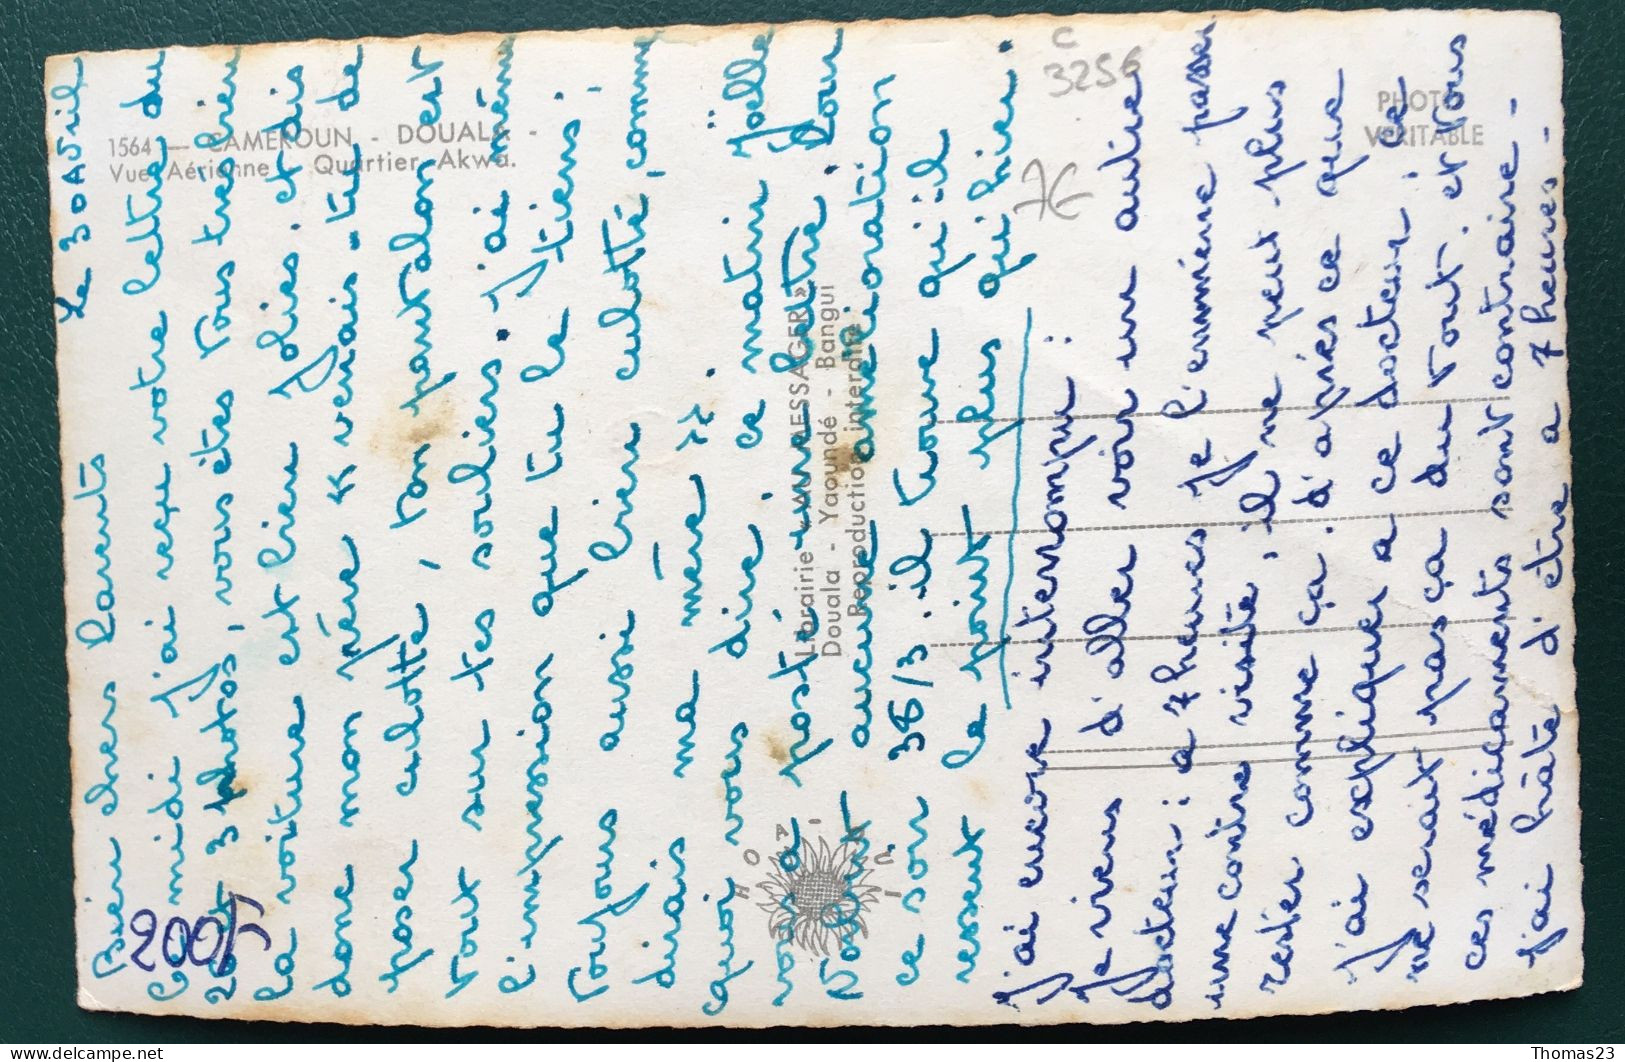 Le 30 Avril
Bien chers Parents
Ce midi j'ai reçu votre lettre du
20 et 3 photos, vous êtes tous très bien
la voiture est bien jolie, et dis
donc mon frère "verrais-tu de
poser culotte, ton pantalon est
tout sur tes souliers. J'ai même
l'impression que tu le tiens;
toujours aussi bien culotté, comme
dirais ma mère".
quoi vous dire, ce matin Joëlle
vous a posté une lettre. Pour
l'instant aucune amélioration
ce soir 38/3. il trouve qu'il
ressent le point plus qu'hier.
J'ai encore interrompu:
Je viens d'aller voir un autre
docteur: a 7 heures je l'emmène passer
une contre visite, il ne peut plus
rester comme ça. d'après ce que
j'ai expliquer a ce docteur: ce
ne serait pas ça du tout. et tous
ces médicaments sont contraire-
J'ai hâte d'être a 7 heures-
1564 — CAMEROUN - DOUALA -
Vue Aérienne Quartier Akwa.
PHOTO
VERITABLE
Librairie « AU MESSAGER »
Douala - Yaoundé - Bangui
Reproduction interdite
HOA-QUI
C
3256
7€
200F
delcampe.net
Thomas23